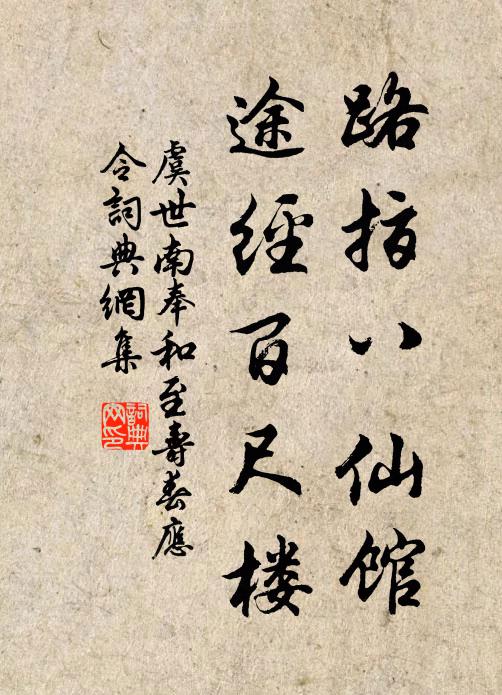 路指八仙馆
途经百尺楼
虞世南奉和至壽春應
令詞典網集
詞典
网印